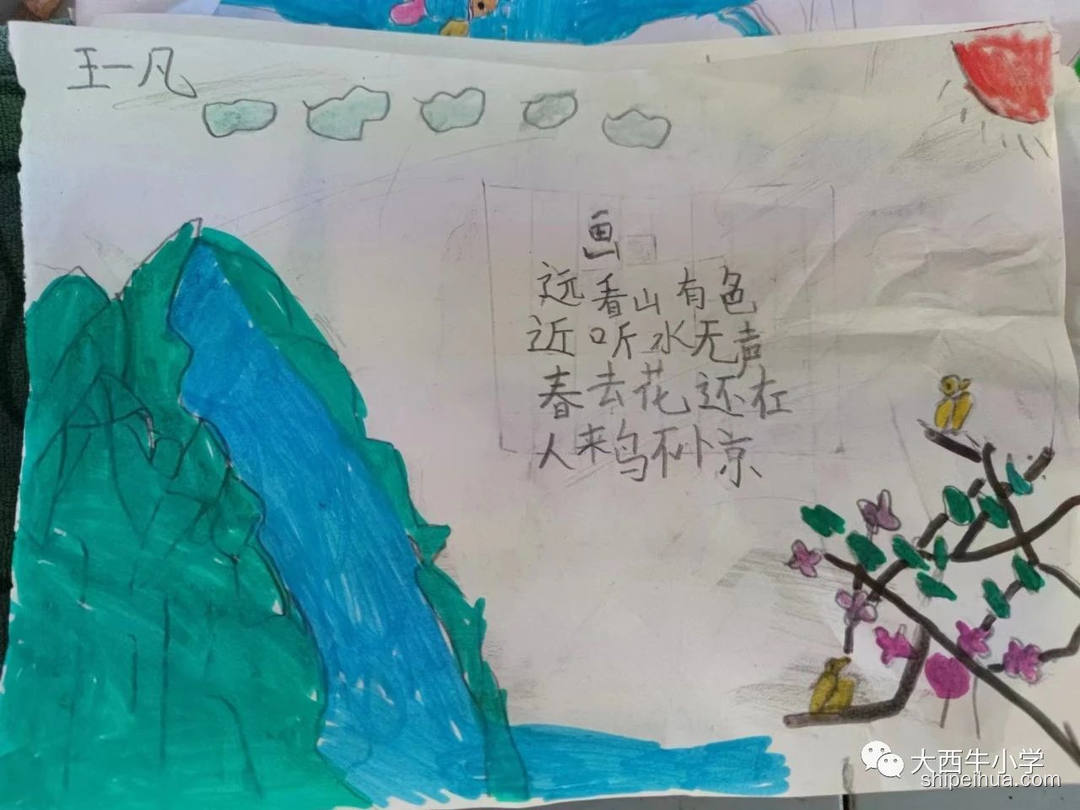 王一凡
画
远看山有色
近听水无声
春去花还在
人来鸟不卟京
大西牛小学
shipeihua.com